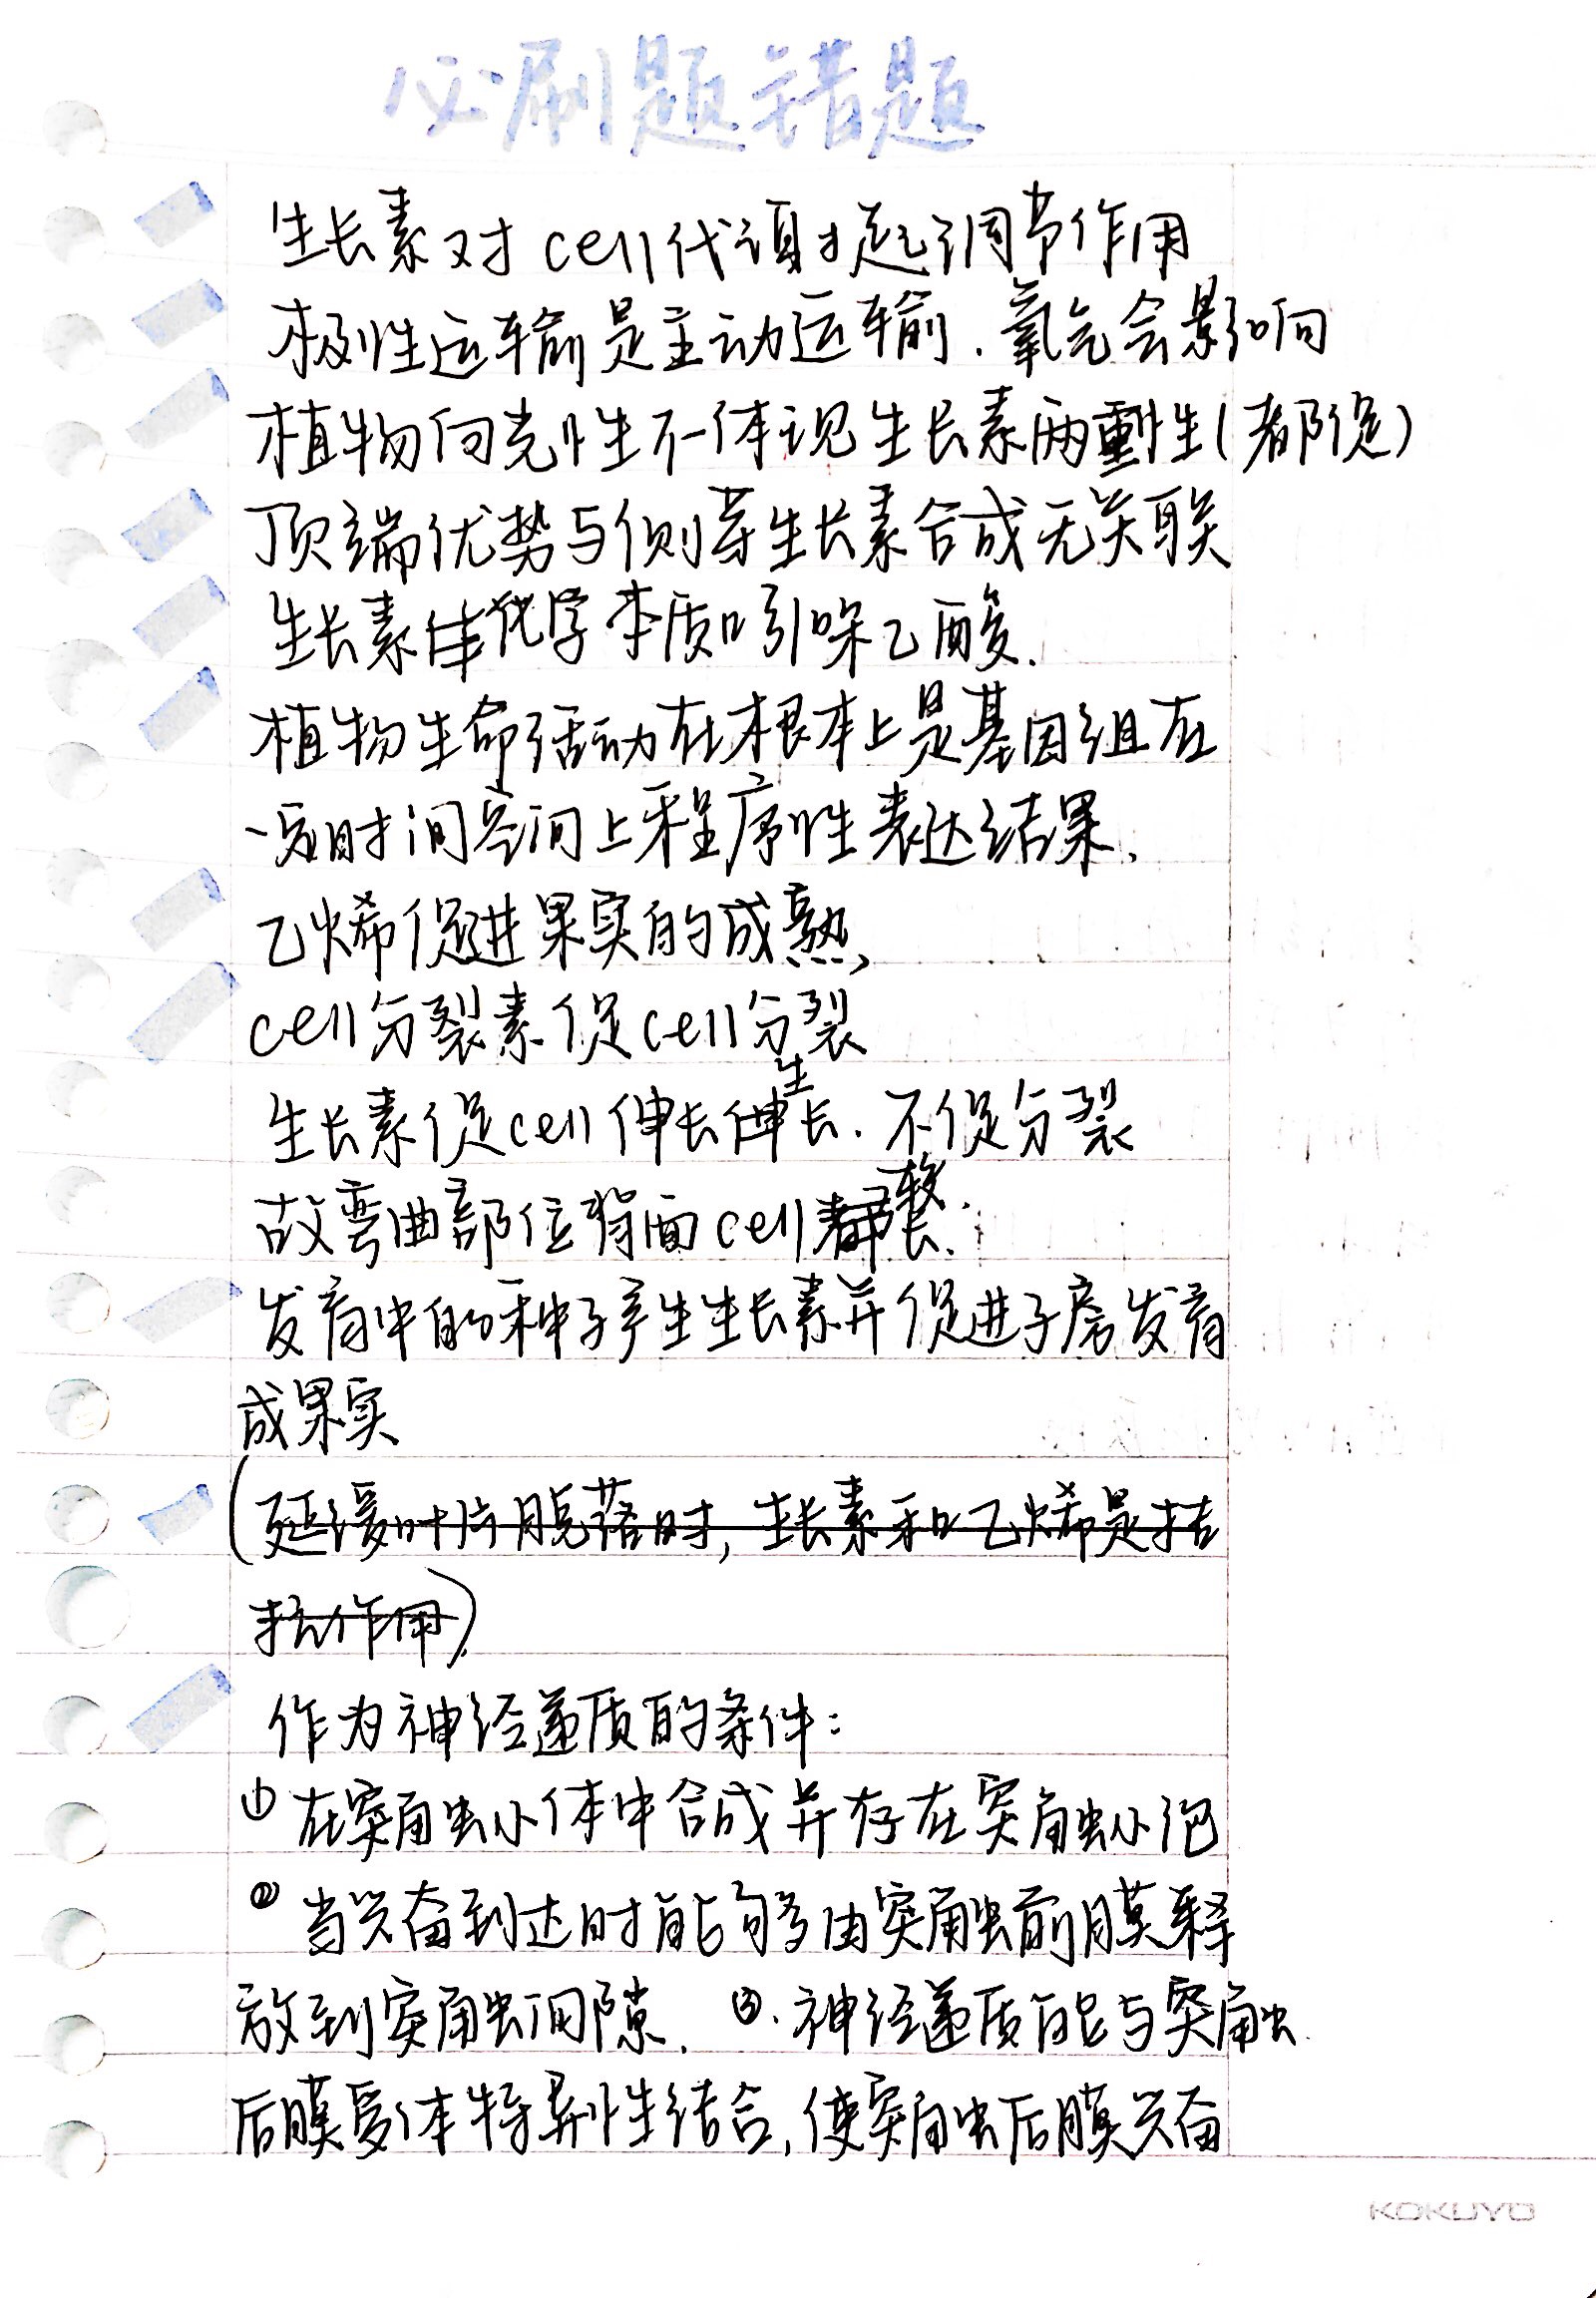 必刷题错题
生长素对cell代谢才起调节作用
极性运输是主动运输.氧气会影响
植物向光性不体现生长素两重性(都促)
顶端优势与侧芽生长素合成无关联
生长素化学本质吲哚乙酸.
植物生命活动在根本上是基因组在
一定时间空间上程序性表达结果.
乙烯促进果实的成熟,
cell分裂素促cell分裂
生长素促cell伸长生长.不促分裂
故弯曲部位背面cell较长.
发育中的种子产生生长素并促进子房发育
成果实
(延缓叶片脱落时,生长素和乙烯是拮
抗作用).
作为神经递质的条件:
①在突触小体中合成并存在突触小泡
②当兴奋到达时能够由突触前膜释
放到突触间隙. ③.神经递质能与突触.
后膜受体特异性结合,使突触后膜兴奋
KOKUYO